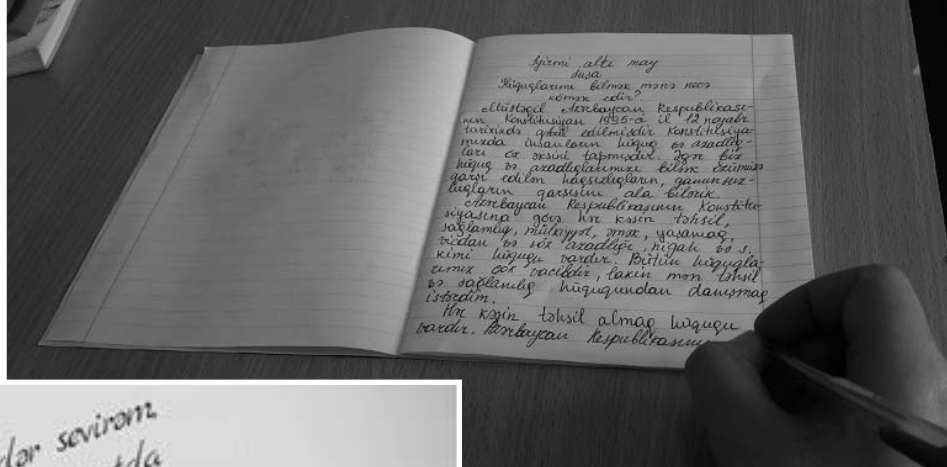 İyirmi altı may
Şuşa
Hüquqlarımı bilmək mənə necə
kömək edir?
Müstəqil Azərbaycan Respublikası-
nın Konstitusiyası 1995-ci il 12 noyabr
tarixində qəbul edilmişdir. Konstitusiya-
mızda insanların hüquq və azadlıq-
ları öz əksini tapmışdır. Əgər biz
hüquq və azadlıqlarımızı bilsək özümüzə
qarşı edilən haqsızlıqların, qanunsuz-
luqların qarşısını ala bilərik.
Azərbaycan Respublikasının Konstitu-
siyasına görə hər kəsin təhsil,
sağlamlıq, mülkiyyət, əmək, yaşamaq,
vicdan və söz azadlığı, nigah və s.
kimi hüququ vardır. Bütün hüquqla-
rımız çox vacibdir, lakin mən təhsil
və sağlamlıq hüququndan danışmaq
istərdim.
Hər kəsin təhsil almaq hüququ
vardır. Azərbaycan Respublikasının
dər sevirəm